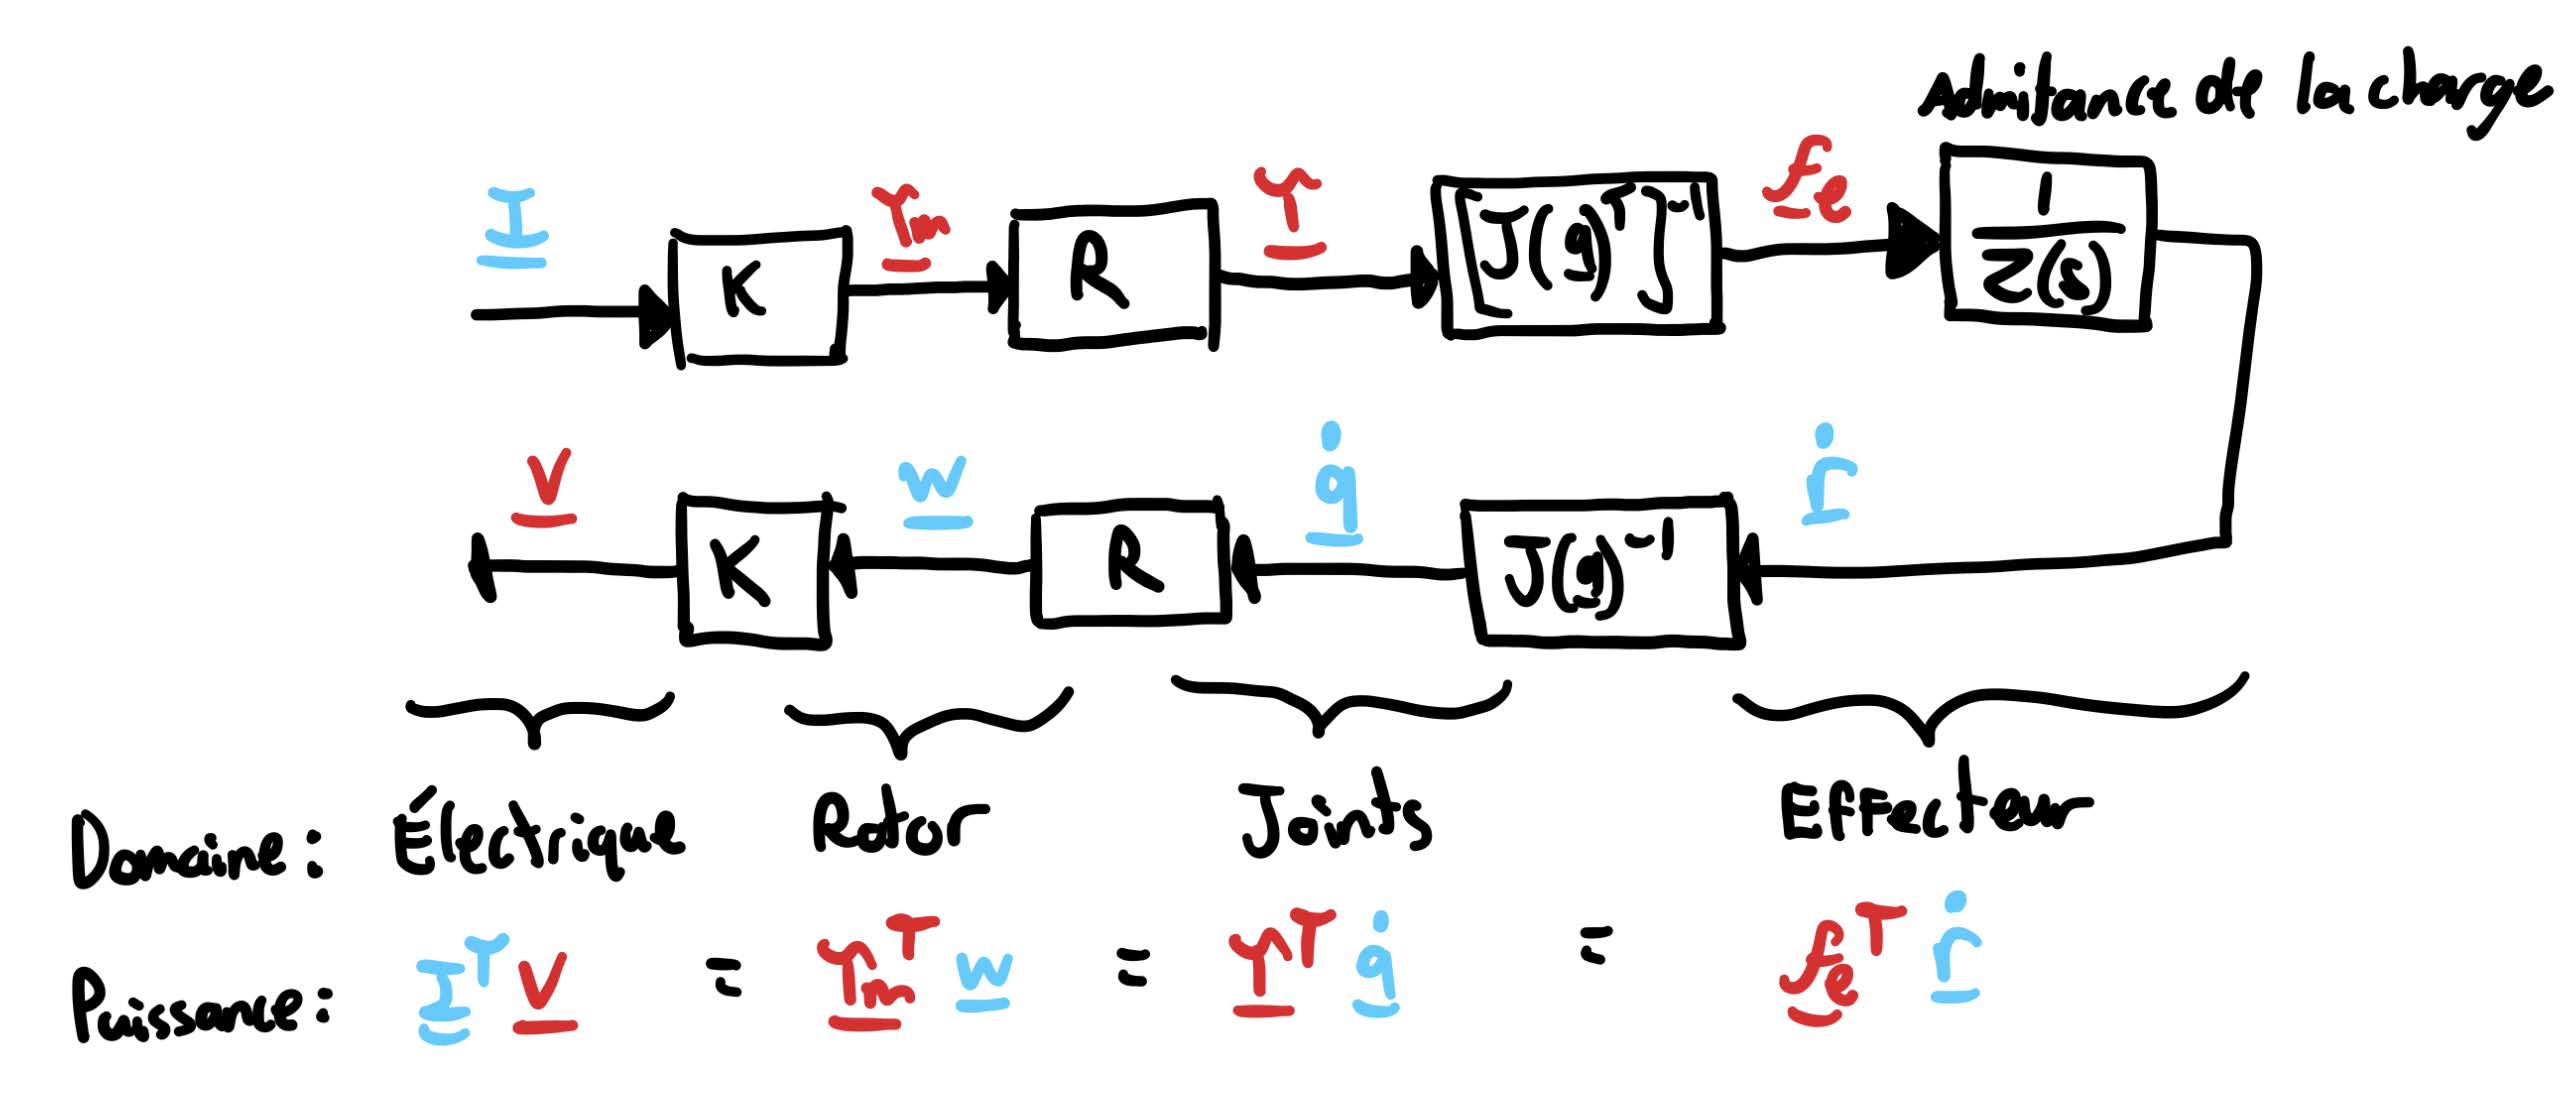 Admitance de la charge
I γm γ fe
K R [J(q)ᵀ]⁻¹ 1/Z(s)
V w q̇ ṙ
K R J(q)⁻¹
Domaine: Électrique Rotor Joints Effecteur
Puissance: Iᵀ V = γmᵀ w = γᵀ q̇ = feᵀ ṙ